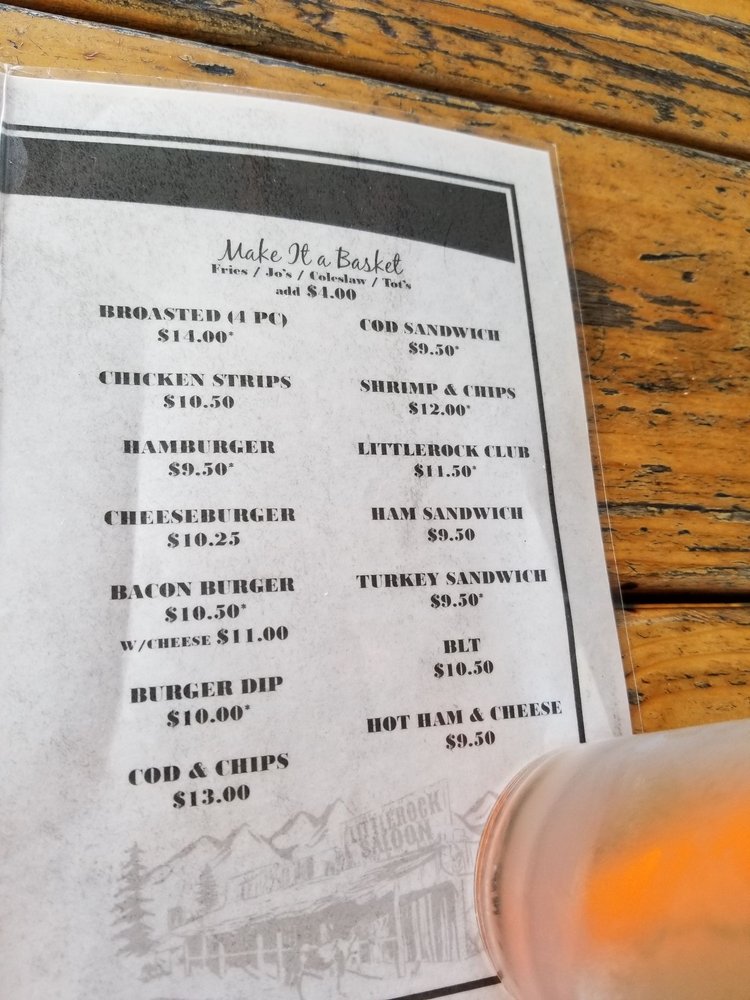 Make It a Basket
Fries / Jo's / Coleslaw / Tot's
add $4.00
BROASTED (4 PC)
$14.00*
CHICKEN STRIPS
$10.50
HAMBURGER
$9.50*
CHEESEBURGER
$10.25
BACON BURGER
$10.50*
W/CHEESE $11.00
BURGER DIP
$10.00*
COD & CHIPS
$13.00
COD SANDWICH
$9.50*
SHRIMP & CHIPS
$12.00*
LITTLEROCK CLUB
$11.50*
HAM SANDWICH
$9.50
TURKEY SANDWICH
$9.50*
BLT
$10.50
HOT HAM & CHEESE
$9.50
LITTLEROCK
SALOON